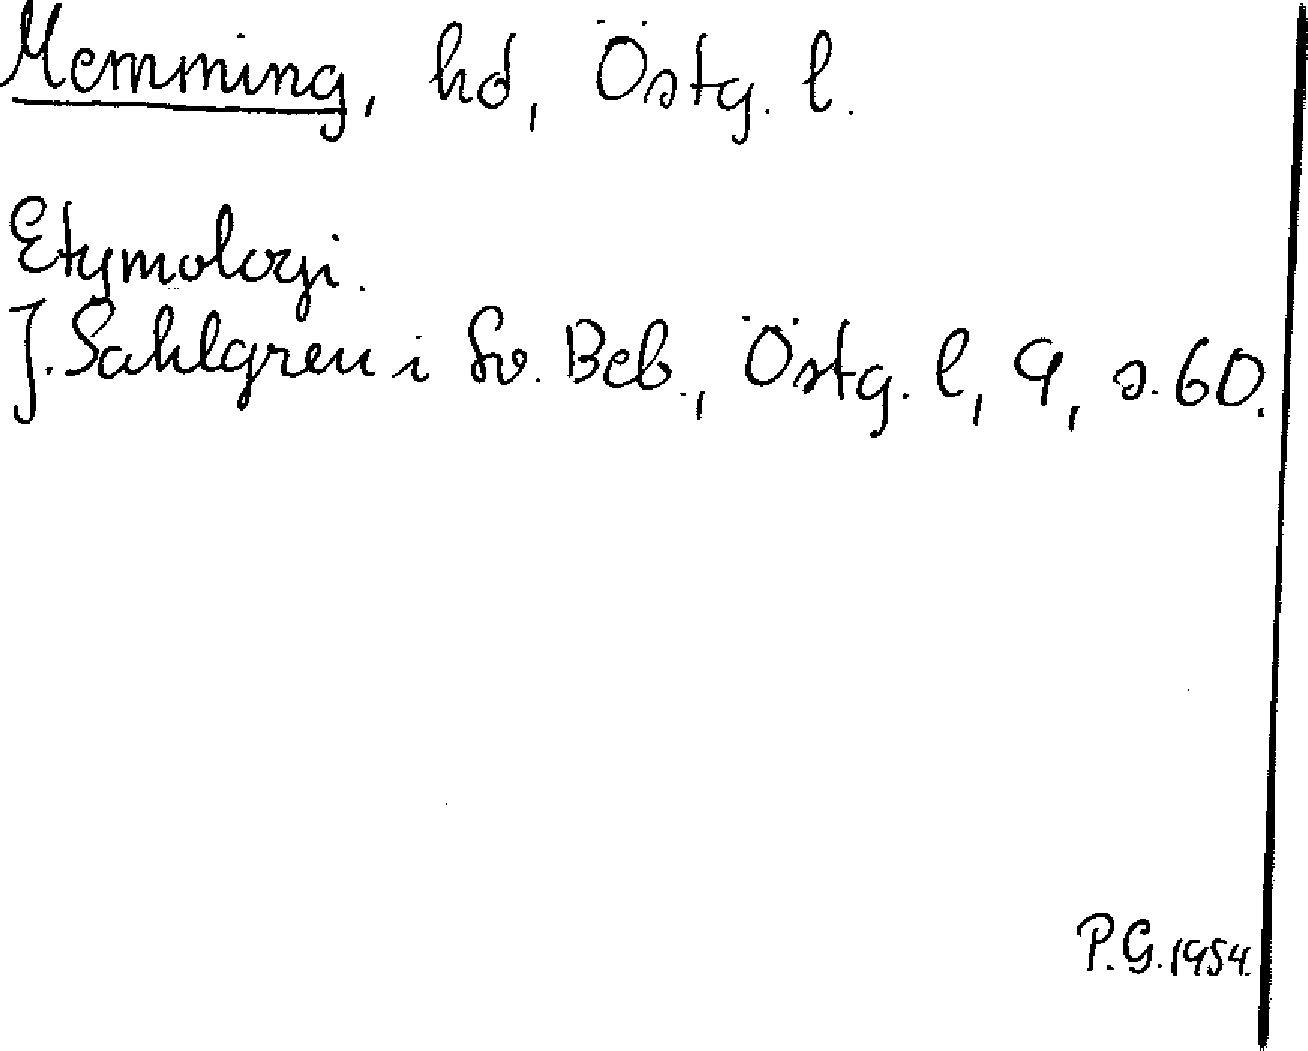 Memming, hd, Östg. l.
Etymologi.
J. Sahlgren i Sv. Beb., Östg. l, 9, s. 60.
P.G. 1954.